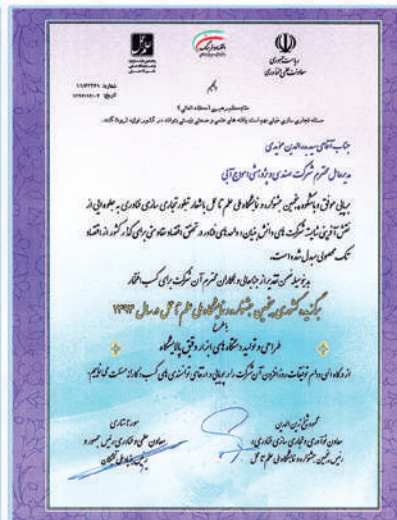 ریاست جمهوری
معاونت علمی و فناوری
شماره: ۱۱/۶۲۴۶۱
مقام معظم رهبری (مدظله العالی)
مسئله تجاری سازی خیلی مهم است، یافته های علمی و صنعتی بایستی بتوانند در کشور تولید ثروت کنند.
جناب آقای سید بدرالدین مؤیدی
مدیرعامل محترم شرکت صنعتی و پژوهشی امواج آبی
برپایی موفق و باشکوه پنجمین جشنواره و نمایشگاه ملی علم تا عمل با شعار تبلور تجاری سازی فناوری به جلوه ایی از
نقش آفرینی شایسته شرکت های دانش بنیان و واحدهای فناور در تحقق اقتصاد مقاومتی برای گذر کشور از اقتصاد
تک محصولی مبدل شده است.
بدینوسیله ضمن تقدیر از جنابعالی و همکاران محترم آن شرکت برای کسب افتخار
برگزیده کشوری پنجمین جشنواره و نمایشگاه ملی علم تا عمل در سال ۱۳۹۳
با طرح
طراحی و تولید دستگاه های ابزار دقیق پالایشگاه
از درگاه الهی دوام توفیقات روزافزون آن شرکت را در پویایی و ارتقای توانمندی های کسب و کار از مسئلت می نماییم.
محمود شیخ زین الدین
معاون نوآوری و تجاری سازی فناوری و
رئیس پنجمین جشنواره و نمایشگاه ملی علم تا عمل
سورنا ستاری
معاون علمی و فناوری رئیس جمهور و
رئیس بنیاد ملی نخبگان